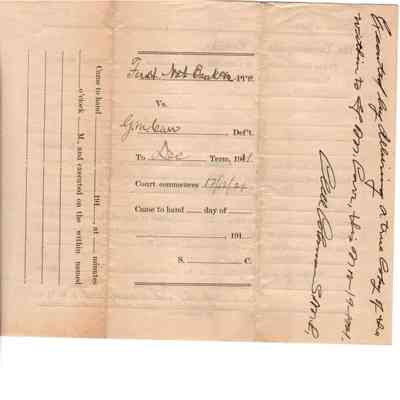 First Nat Bank Pl'ff.
Vs.
G M Carr Def't.
To Dec Term, 19
Court commences 12/12/21
Came to hand day of
, 191
S. C.
Came to hand 191 , at minutes
o'clock M., and executed on the within named
Executed by delivering a true Copy of the
within to G M Carr, this